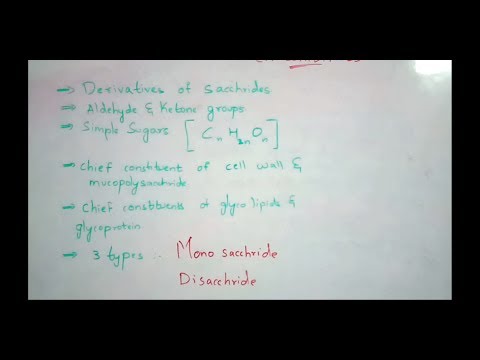 → Derivatives of Sacchrides
→ Aldehyde & Ketone groups
→ Simple Sugars [CnH2nOn]
→ Chief constituent of cell wall &
mucopolysacchride
→ Chief constituents of glyco lipids &
glycoprotein
→ 3 types :- Mono sacchride
Disacchride